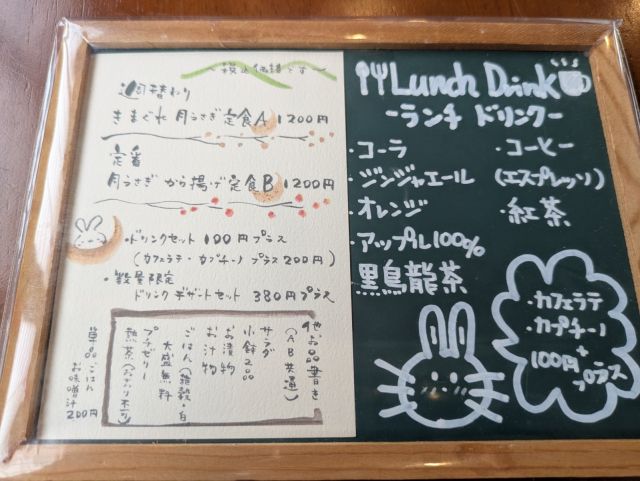 〜税込価格です〜
週替わり
きまぐれ 月うさぎ 定食A 1200円
定番
月うさぎ から揚げ定食B 1200円
・ドリンクセット 100円プラス
(カフェラテ・カプチーノ プラス 200円)
・数量限定
ドリンク デザートセット 380円プラス
他お品書き
(AB共通)
サラダ
小鉢2品
お漬物
お汁物
ごはん(雑穀・白)
大盛無料
プチゼリー
熱茶(おかわり不可)
単品ごはん
お味噌汁
200円
Lunch Drink
-ランチ ドリンク-
・コーラ
・ジンジャエール
・オレンジ
・アップル100%
黒烏龍茶
・コーヒー
(エスプレッソ)
・紅茶
・カフェラテ
・カプチーノ
+
100円
プラス